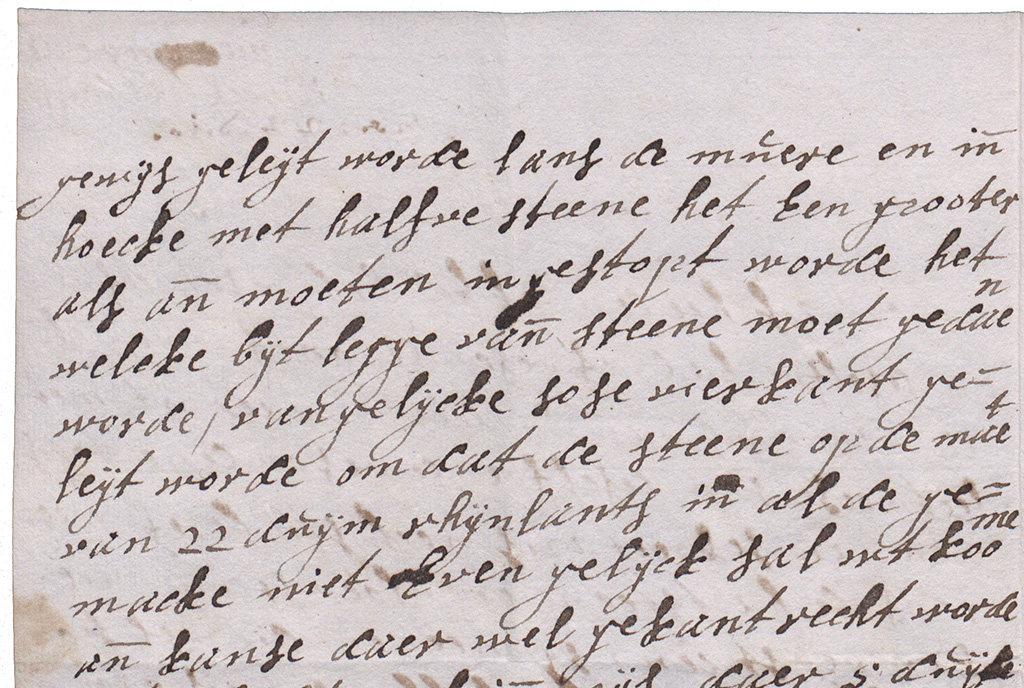 gewijs geleijt worde lans de mŭere en in̄
hoecke met halfve steene het Een grooter
als an̄ moeten ingestopt worde het
welcke bijt legge van̄ steene moet gedaen
worde / van gelijcke so se vierkant ge=
leijt worde om dat de steene op de maet
van 22 dŭijm rhijnlants in al de ge=
macke niet Even gelijck sal wt koome
an̄ kanse daer wel gekantrecht worde
daer